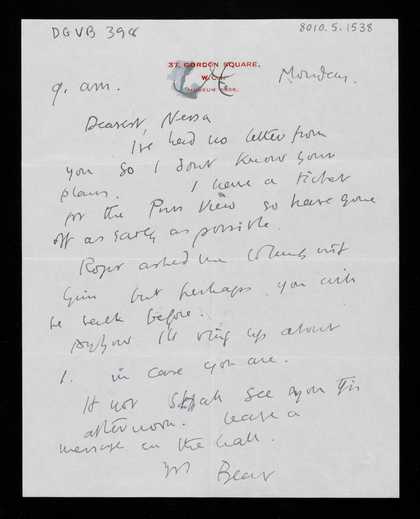 DGVB 398
8010.5.1538
37, GORDON SQUARE,
W.C.1.
MUSEUM
Monday.
9. am.
Dearest Nessa
I've had no letter from
you so I don't know your
plans. I have a ticket
for the Press View so have gone
off as early as possible.
Roger asked me to lunch with
him but perhaps you will
be back before.
Anyhow I'll ring up about
1. in case you are.
If not shall see you this
afternoon. Leave a
message in the hall.
Yr Bear